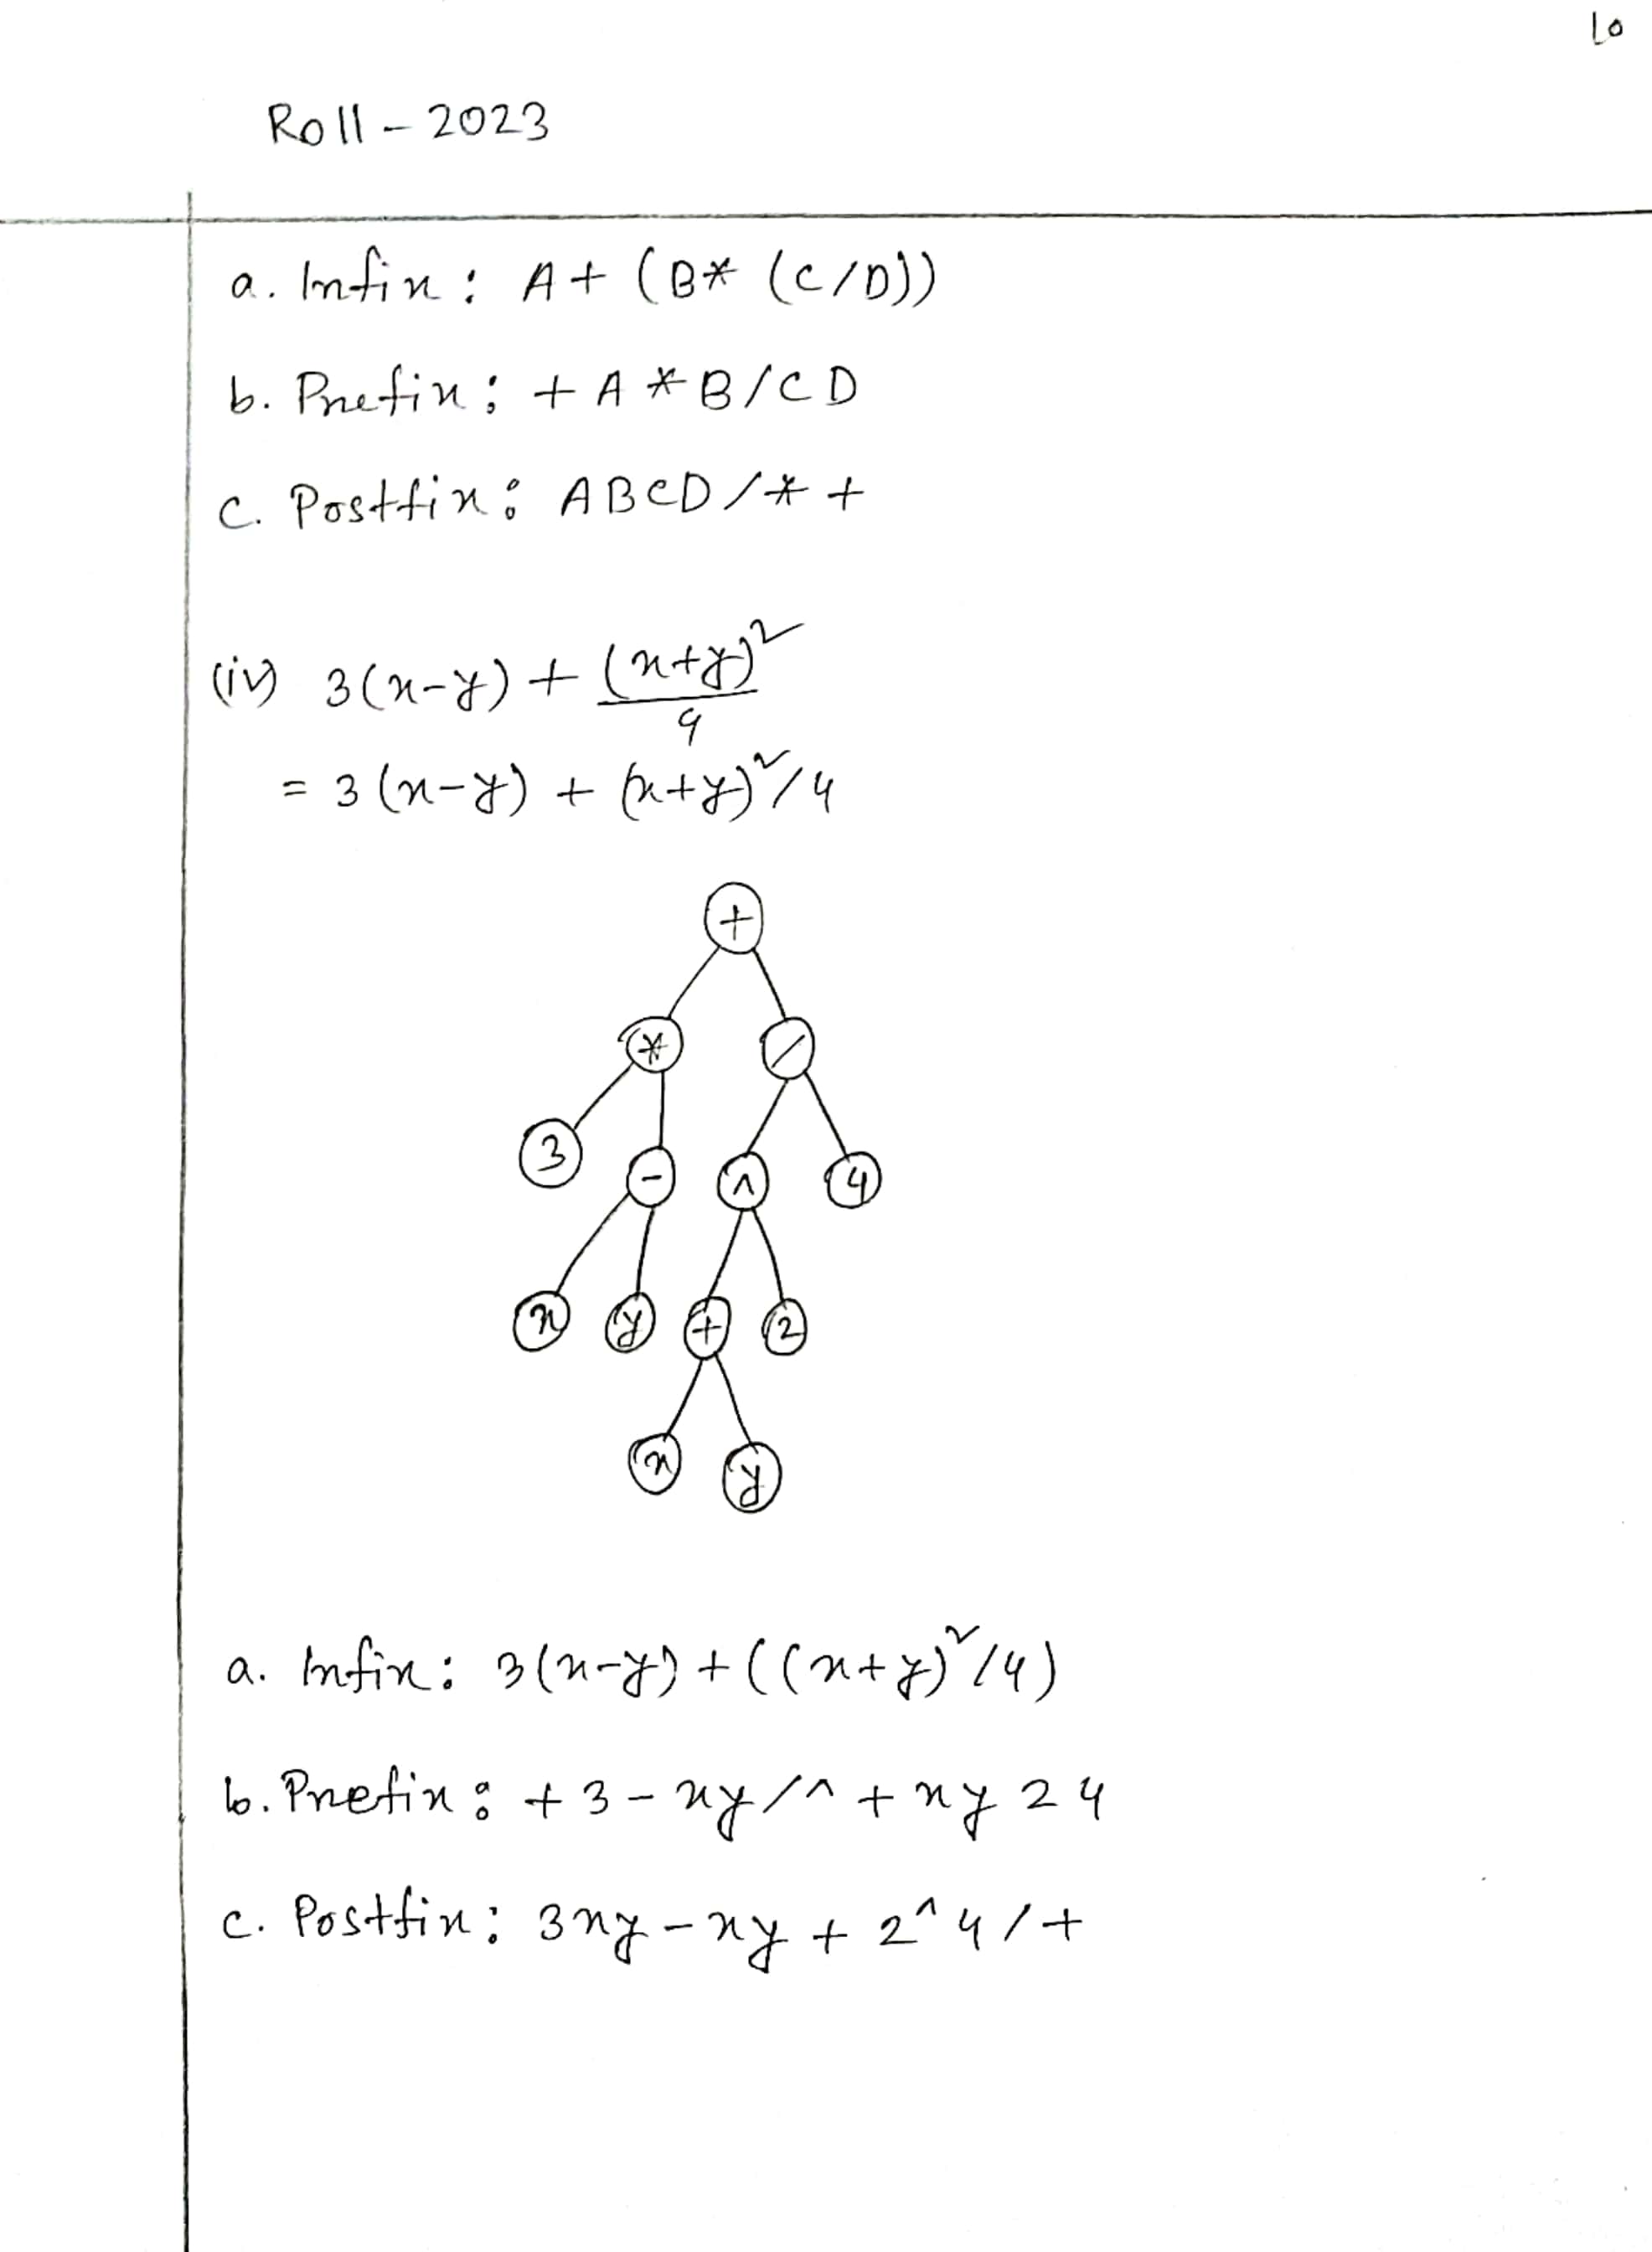 10
Roll - 2023
a. Infix: A + (B* (C/D))
b. Prefix: + A * B / C D
c. Postfix: A B C D / * +
(iv) 3(x-y) + (x+y)²
4
= 3(x-y) + (x+y)²/4
+
* /
3 - ^ 4
x y + 2
x y
a. Infix: 3(x-y) + ((x+y)²/4)
b. Prefix: + 3 - xy / ^ + xy 2 4
c. Postfix: 3xy - xy + 2 ^ 4 / +